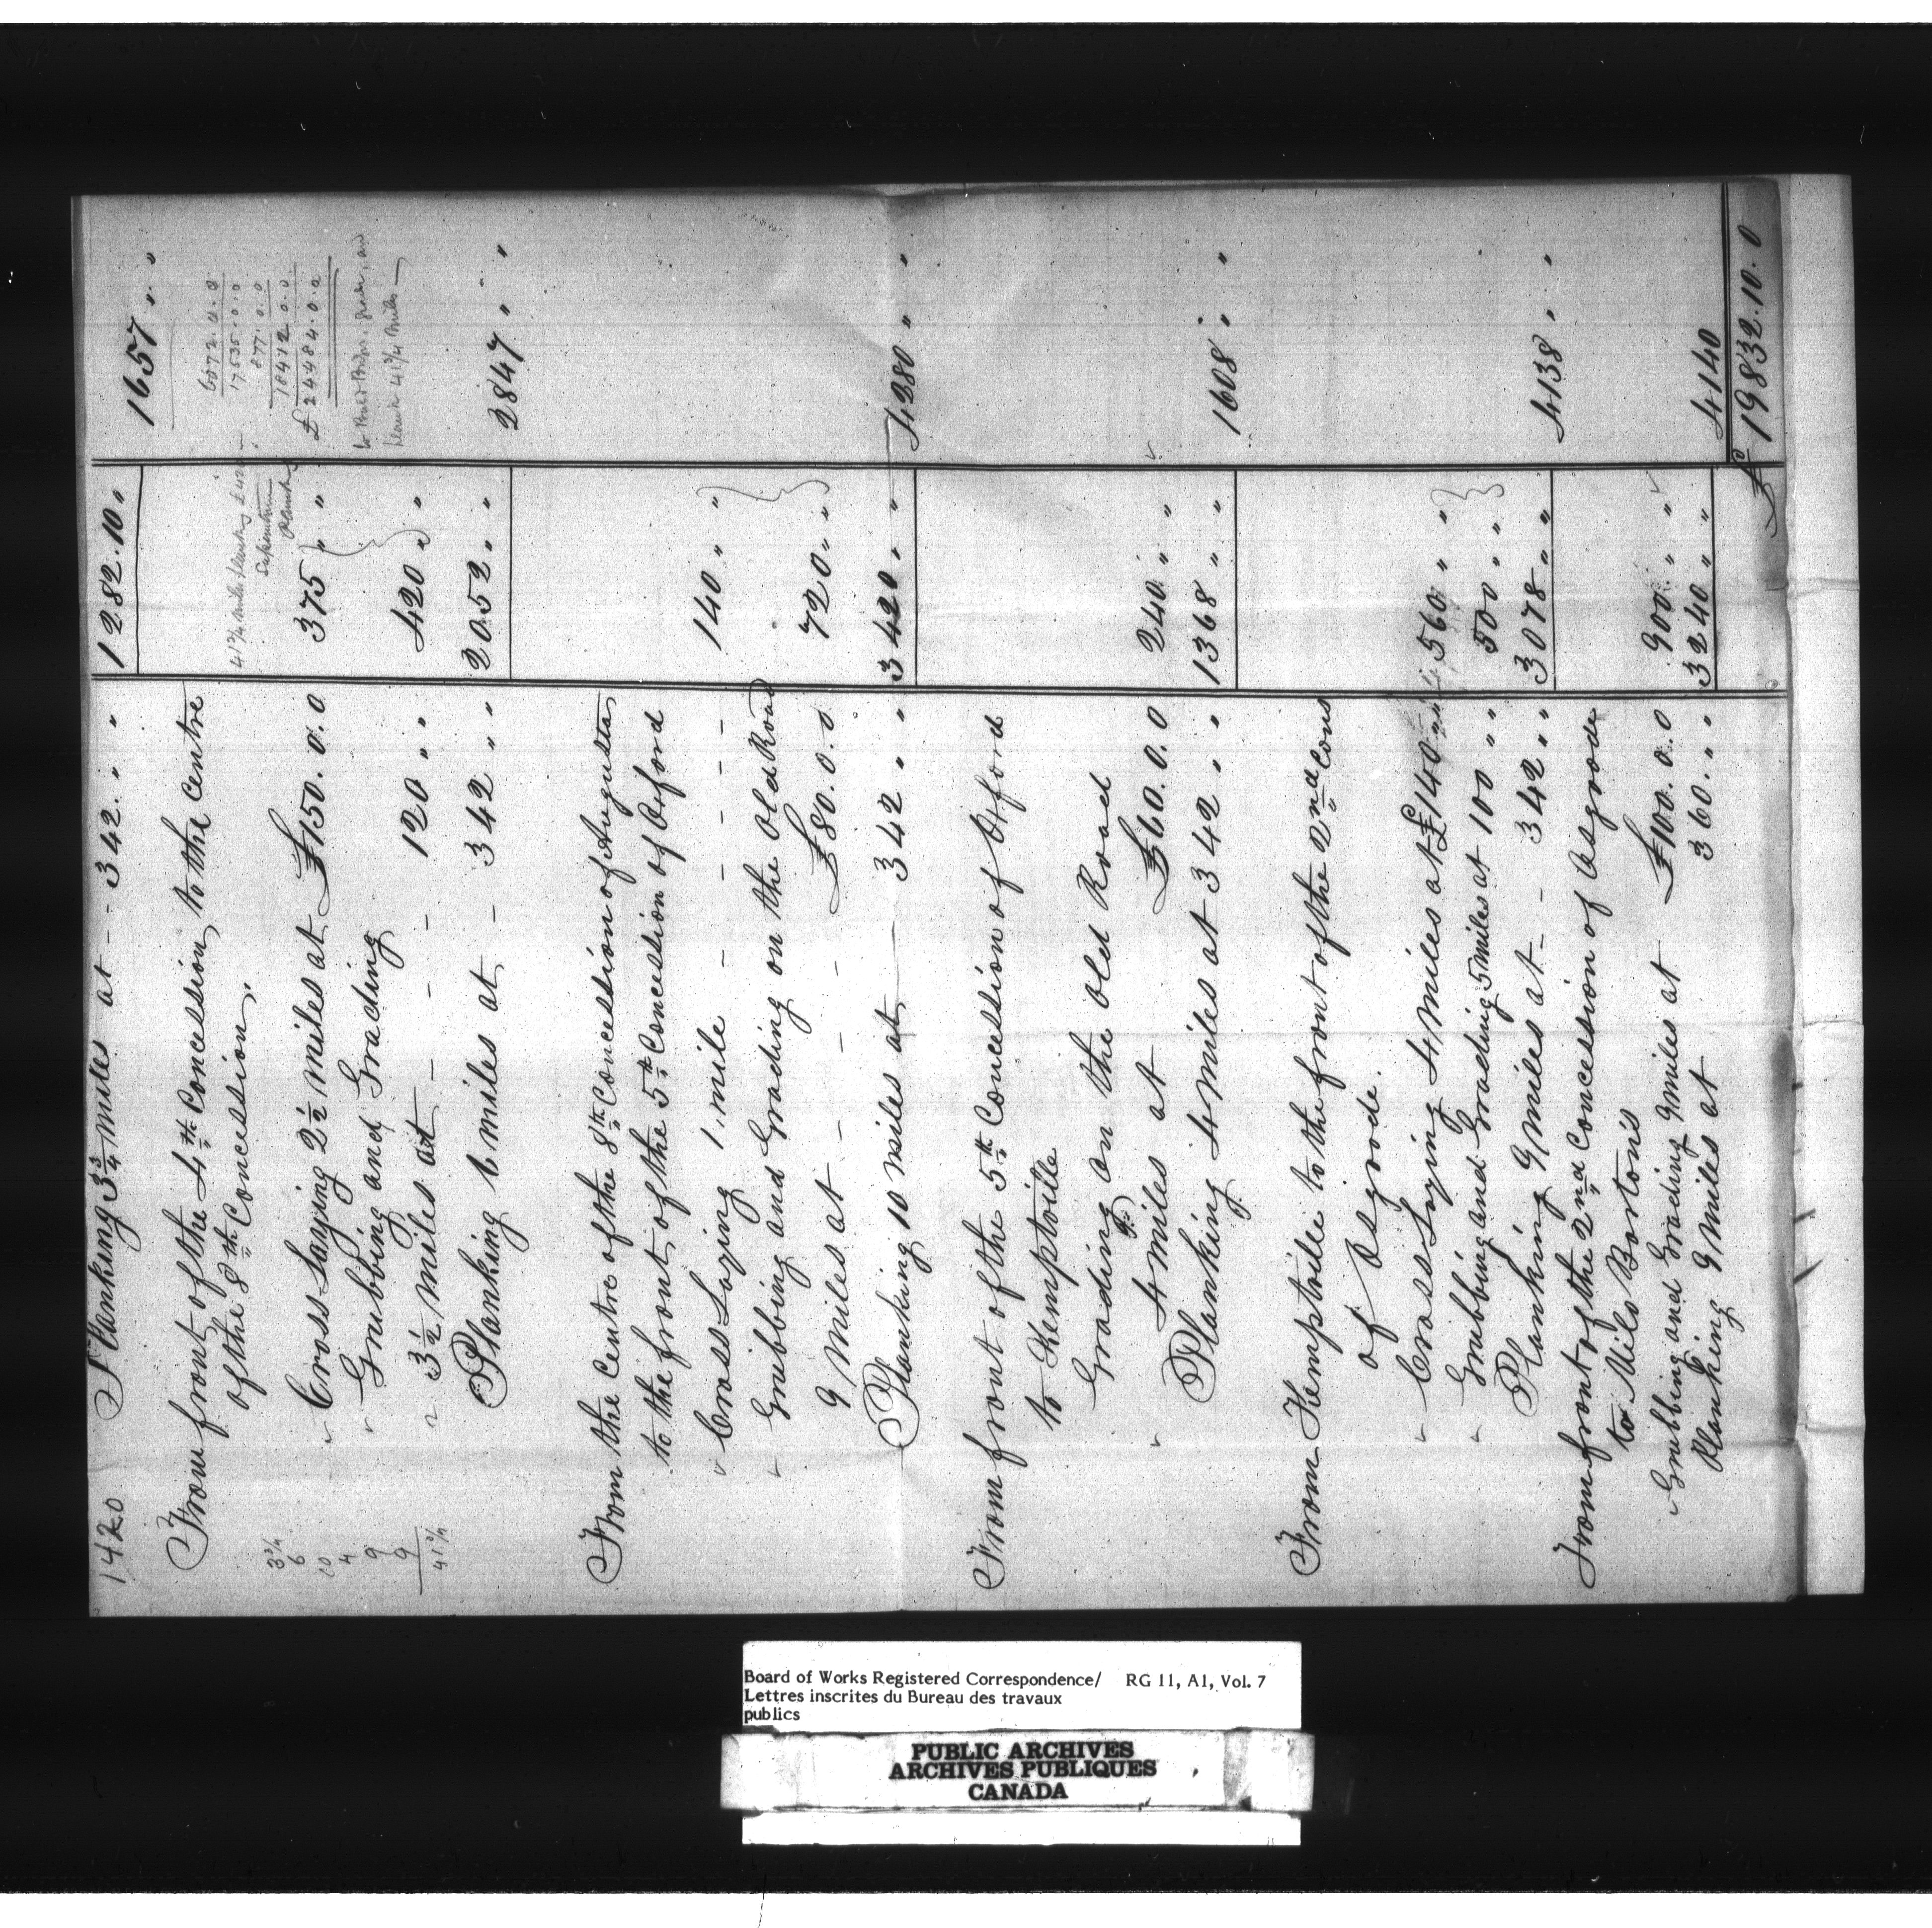 1420 Planking 3 3/4 miles at - - 342 " " 1282.10 "
1657 " "
From front of the 4th Concession, to the Centre
of the 8th Concession.
Cross Laying 2 1/2 miles at £150.0.0 375 " "
Grubbing and Grading
3 1/2 miles at - - - 120 " " 420 " "
Planking 6 miles at - 342 " " 2052 " "
2847 " "
3 3/4
6
10
4
9
9
41 3/4
41 3/4 miles planking £420
Planking
6072.0.0
17535.0.0
877.0.0
18412.0.0
£24484.0.0
to Build Bridges, grade, and
plank 41 3/4 Miles —
From the Centre of the 8th Concession of Augusta,
to the front, of the 5th Concession of Oxford
Cross Laying 1 mile - - - - - 140 " "
Grubbing and Grading on the Old Road
9 Miles at - - - £80.0.0 720 " "
Planking 10 miles at — 342 " " 3420 " "
4280 " "
From front of the 5th Concession of Oxford
to Kemptville
Grading on the Old Road
4 miles at £60.0.0 240 " "
Planking 4 miles at 342 " " 1368 " "
1608 " "
From Kemptville to the front of the 2nd Cons
of Osgoode.
Cross Laying 4 miles at £140 " " 560 " "
Grubbing and Grading 5 miles at 100 " " 500 " "
Planking 9 miles at - - 342 " " 3078 " "
4138 " "
From front of the 2nd Concession of Osgoode
to Milo Borton's
Grubbing and Grading 9 miles at £100.0.0 900 " "
Planking 9 Miles at 360 " " 3240 " "
4140
£19832.10.0
Board of Works Registered Correspondence/ RG 11, A1, Vol. 7
Lettres inscrites du Bureau des travaux
publics
PUBLIC ARCHIVES
ARCHIVES PUBLIQUES
CANADA